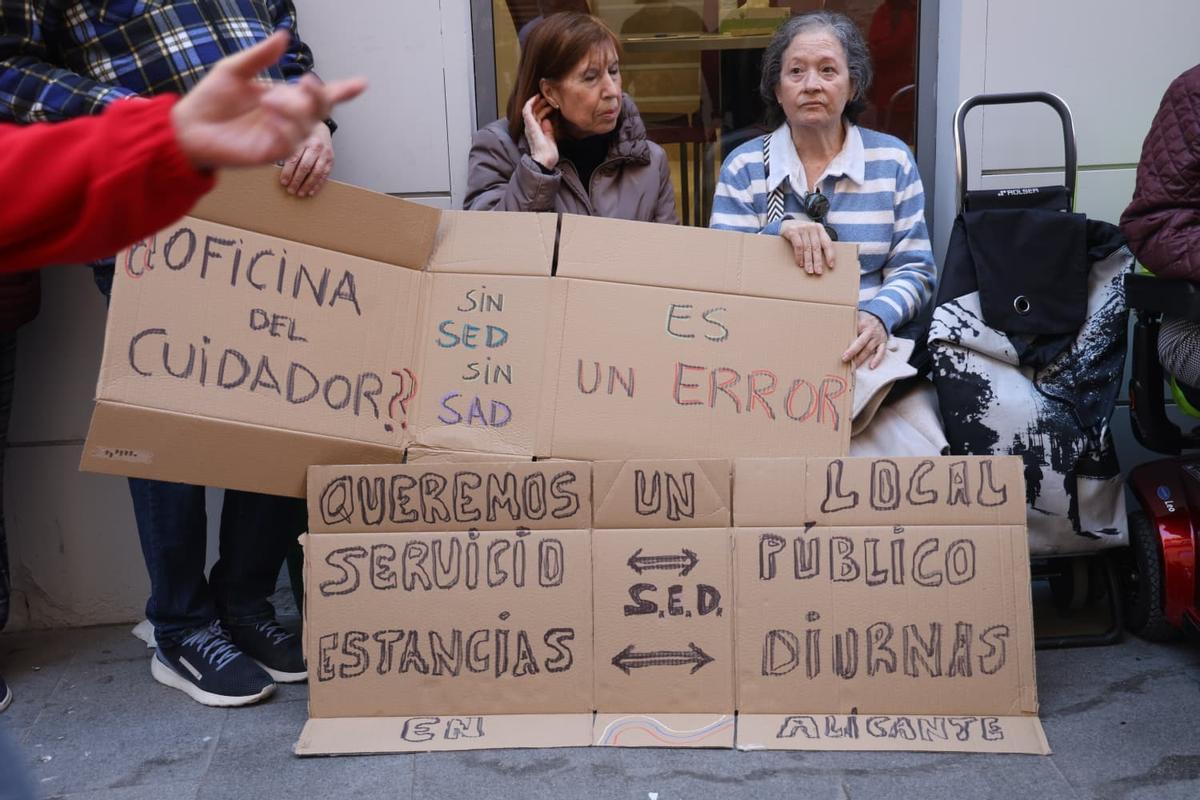 ¿OFICINA
DEL
CUIDADOR?
SIN
SED
SIN
SAD
ES
UN ERROR
QUEREMOS UN LOCAL
SERVICIO ⟷ PÚBLICO
S.E.D.
ESTANCIAS ⟷ DIURNAS
EN ALICANTE
ROLSER
Leo